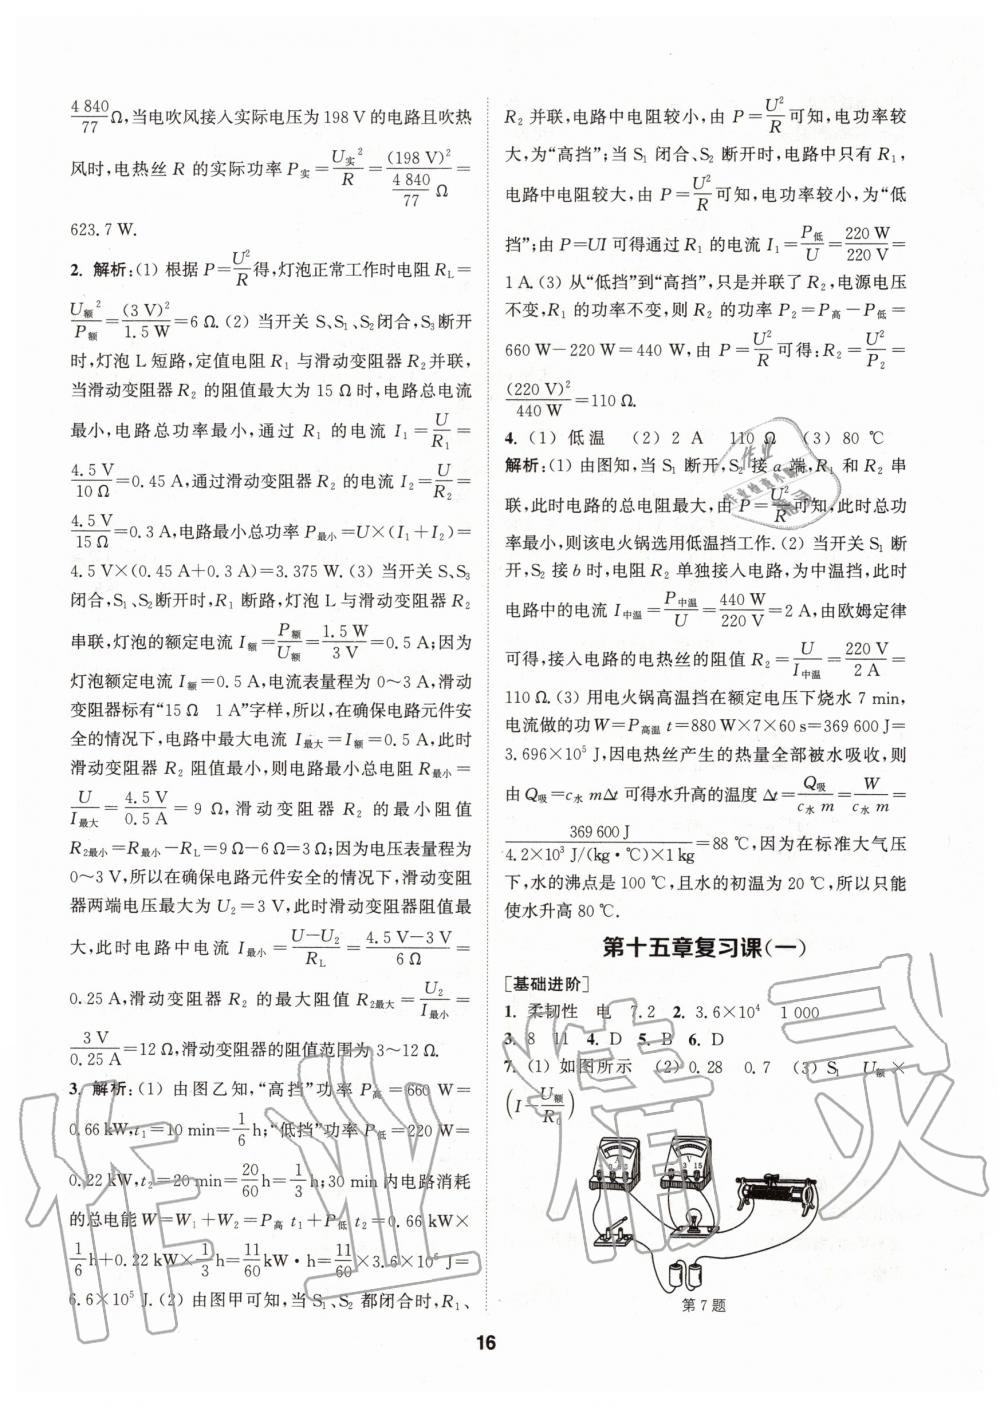 4 840/77 Ω,当电吹风接入实际电压为 198 V 的电路且吹热
风时,电热丝 R 的实际功率 P实=U实²/R=(198 V)²/(4 840/77 Ω)=
623.7 W.
2. 解析:(1) 根据 P=U²/R得,灯泡正常工作时电阻 RL=
U额²/P额=(3 V)²/1.5 W=6 Ω.(2) 当开关 S、S₁、S₂闭合,S₃断开
时,灯泡 L 短路,定值电阻 R₁ 与滑动变阻器 R₂并联,
当滑动变阻器 R₂ 的阻值最大为 15 Ω 时,电路总电流
最小,电路总功率最小,通过 R₁ 的电流 I₁=U/R₁=
4.5 V/10 Ω=0.45 A,通过滑动变阻器的电流 I₂=U/R₂=
4.5 V/15 Ω=0.3 A,电路最小总功率 P最小=U×(I₁+I₂)=
4.5 V×(0.45 A+0.3 A)=3.375 W.(3) 当开关 S、S₃
闭合,S₁、S₂断开时,R₁ 断路,灯泡 L 与滑动变阻器 R₂
串联,灯泡的额定电流 I额=P额/U额=1.5 W/3 V=0.5 A;因为
灯泡额定电流 I额=0.5 A,电流表量程为 0~3 A,滑动
变阻器标有“15 Ω 1 A”字样,所以,在确保电路元件安
全的情况下,电路中最大电流 I最大=I额=0.5 A,此时
滑动变阻器 R₂ 阻值最小,则电路最小总电阻 R最小=
U/I最大=4.5 V/0.5 A=9 Ω,滑动变阻器 R₂ 的最小阻值
R₂最小=R最小-RL=9 Ω-6 Ω=3 Ω;因为电压表量程为
0~3 V,所以在确保电路元件安全的情况下,滑动变阻
器两端电压最大为 U₂=3 V,此时滑动变阻器阻值最
大,此时电路中电流 I最小=(U-U₂)/RL=(4.5 V-3 V)/6 Ω=
0.25 A,滑动变阻器 R₂ 的最大阻值 R₂最大=U₂/I最小=
3 V/0.25 A=12 Ω,滑动变阻器的阻值范围为 3~12 Ω.
3. 解析:(1) 由图乙知,“高挡”功率 P高=660 W=
0.66 kW,t₁=10 min=1/6 h;“低挡”功率 P低=220 W=
0.22 kW,t₂=20 min=20/60 h=1/3 h;30 min 内电路消耗
的总电能 W=W₁+W₂=P高 t₁+P低 t₂=0.66 kW×
1/6 h+0.22 kW×1/3 h=11/60 kW·h=11/60×3.6×10⁶ J=
6.6×10⁵ J.(2) 由图甲可知,当 S₁、S₂ 都闭合时,R₁、
R₂ 并联,电路中电阻较小,由 P=U²/R可知,电功率较
大,为“高挡”;当 S₁ 闭合、S₂ 断开时,电路中只有 R₁,
电路中电阻较大,由 P=U²/R可知,电功率较小,为“低
挡”;由 P=UI 可得通过 R₁ 的电流 I₁=P低/U=220 W/220 V=
1 A.(3) 从“低挡”到“高挡”,只是并联了 R₂,电源电压
不变,R₁ 的功率不变,则 R₂ 的功率 P₂=P高-P低=
660 W-220 W=440 W,由 P=U²/R可得:R₂=U²/P₂=
(220 V)²/440 W=110 Ω.
4. (1) 低温 (2) 2 A 110 Ω (3) 80 ℃
解析:(1) 由图知,当 S₁ 断开,S₂ 接 a 端,R₁ 和 R₂ 串
联,此时电路的总电阻最大,由 P=U²/R可知,此时总功
率最小,则该电火锅选用低温挡工作.(2) 当开关 S₁ 断
开,S₂ 接 b 时,电阻 R₂ 单独接入电路,为中温挡,此时
电路中的电流 I中温=P中温/U=440 W/220 V=2 A,由欧姆定律
可得,接入电路的电热丝的阻值 R₂=U/I中温=220 V/2 A=
110 Ω.(3) 用电火锅高温挡在额定电压下烧水 7 min,
电流做的功 W=P高温 t=880 W×7×60 s=369 600 J=
3.696×10⁵ J,因电热丝产生的热量全部被水吸收,则
由 Q吸=c水 mΔt 可得水升高的温度 Δt=Q吸/(c水 m)=W/(c水 m)=
369 600 J/(4.2×10³ J/(kg·℃)×1 kg)=88 ℃,因为在标准大气压
下,水的沸点是 100 ℃,且水的初温为 20 ℃,所以只能
使水升高 80 ℃.
第十五章复习课(一)
[基础进阶]
1. 柔韧性 电 7.2 2. 3.6×10⁴ 1 000
3. 8 11 4. D 5. B 6. D
7. (1) 如图所示 (2) 0.28 0.7 (3) S₁ U额×
(I-U额/R₀)
第 7 题
16
作业精灵